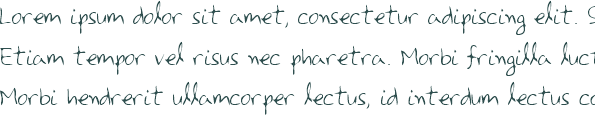 Lorem ipsum dolor sit amet, consectetur adipiscing elit. S
Etiam tempor vel risus nec pharetra. Morbi fringilla luct
Morbi hendrerit ullamcorper lectus, id interdum lectus co